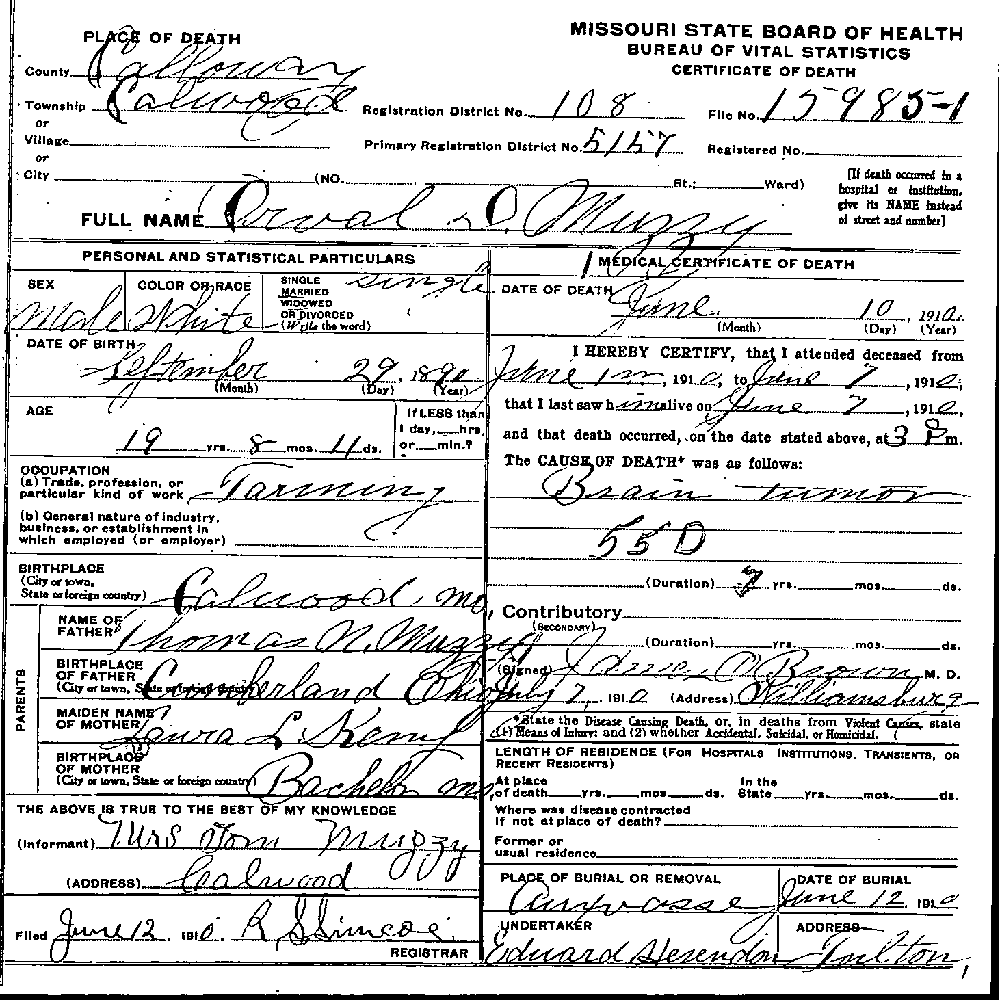 PLACE OF DEATH
County Calloway
Township Calwood
or
Village
or
City (NO. St.; Ward)
MISSOURI STATE BOARD OF HEALTH
BUREAU OF VITAL STATISTICS
CERTIFICATE OF DEATH
Registration District No. 108 File No. 15985-1
Primary Registration District No. 5157 Registered No.
[If death occurred in a
hospital or institution,
give its NAME instead
of street and number]
FULL NAME Orval D. Muzzy
PERSONAL AND STATISTICAL PARTICULARS
SEX Male
COLOR OR RACE White
SINGLE
MARRIED
WIDOWED
OR DIVORCED
(Write the word) Single
DATE OF BIRTH
September 29, 1890
(Month) (Day) (Year)
AGE
19 yrs. 8 mos. 11 ds.
If LESS than
1 day, hrs.
or min.?
OCCUPATION
(a) Trade, profession, or
particular kind of work Farming
(b) General nature of industry,
business, or establishment in
which employed (or employer)
BIRTHPLACE
(City or town,
State or foreign country) Calwood, Mo,
PARENTS
NAME OF
FATHER Thomas N. Muzzy
BIRTHPLACE
OF FATHER
(City or town, State or foreign country) Cumberland Ohio
MAIDEN NAME
OF MOTHER Laura L Kemp
BIRTHPLACE
OF MOTHER
(City or town, State or foreign country) Bachelor Mo,
THE ABOVE IS TRUE TO THE BEST OF MY KNOWLEDGE
(Informant) Mrs Tom Muzzy
(ADDRESS) Calwood
Filed June 12 1910. R S Simcoe
REGISTRAR
MEDICAL CERTIFICATE OF DEATH
DATE OF DEATH June 10, 1910.
(Month) (Day) (Year)
I HEREBY CERTIFY, that I attended deceased from
June 1, 1910, to June 7, 1910,
that I last saw h im alive on June 7, 1910,
and that death occurred, on the date stated above, at 3 P m.
The CAUSE OF DEATH* was as follows:
Brain tumor
55D
(Duration) yrs. mos. ds.
Contributory
(SECONDARY)
(Duration) yrs. mos. ds.
(Signed) James O Brown M. D.
July 7, 1910 (Address) Williamsburg
*State the Disease Causing Death, or, in deaths from Violent Causes, state
(1) Means of Injury; and (2) whether Accidental, Suicidal, or Homicidal.
LENGTH OF RESIDENCE (FOR HOSPITALS INSTITUTIONS, TRANSIENTS, OR
RECENT RESIDENTS)
At place
of death yrs. mos. ds.
In the
State yrs. mos. ds.
Where was disease contracted
If not at place of death?
Former or
usual residence
PLACE OF BURIAL OR REMOVAL
Auxvasse
DATE OF BURIAL
June 12 1910
UNDERTAKER
Eduard Herendon
ADDRESS
Fulton